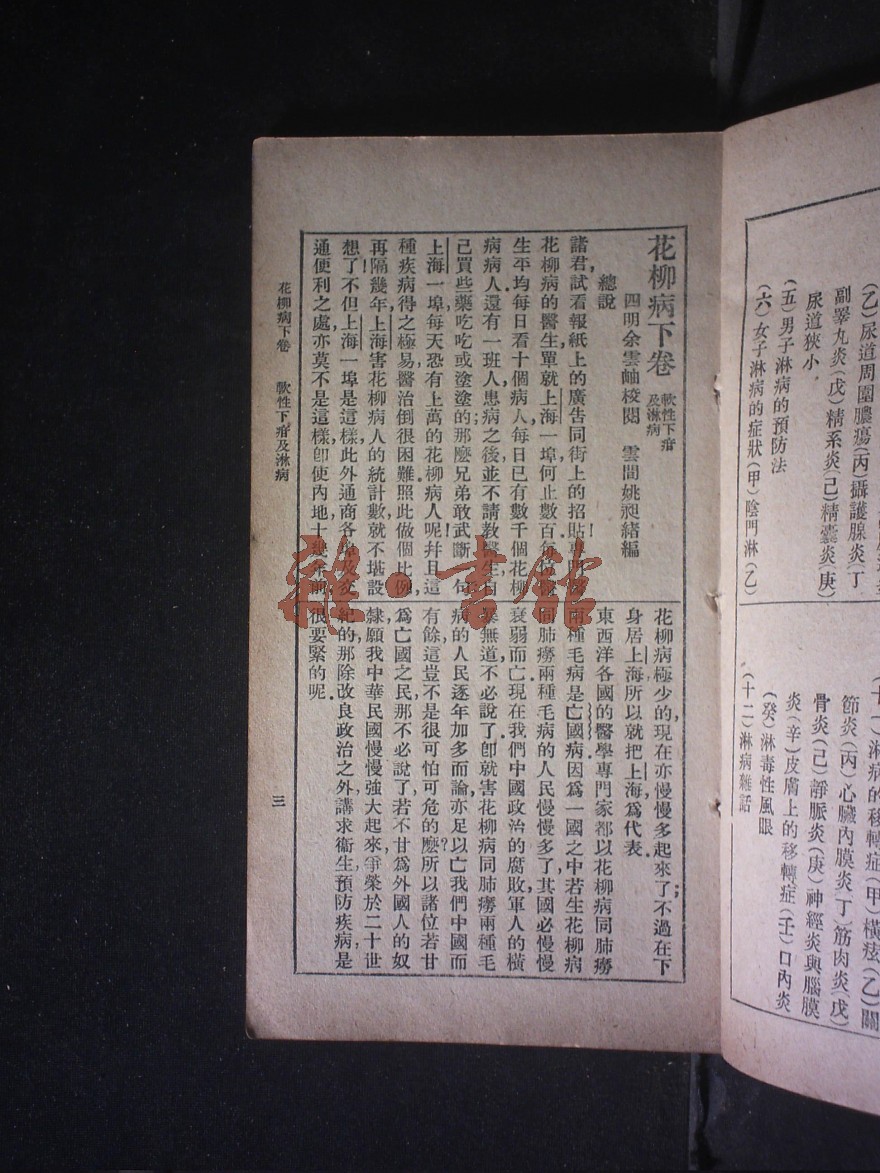 (乙)尿道周圍膿瘍(丙)攝護腺炎(丁
副睪丸炎(戊)精系炎(己)精囊炎(庚)
尿道狹小
(五)男子淋病的預防法
(六)女子淋病的症狀(甲)陰門淋(乙)
淋病的移轉症(甲)橫痃(乙)關
節炎(丙)心臟內膜炎(丁)筋肉炎(戊)
骨炎(己)靜脈炎(庚)神經炎與腦膜
炎(辛)皮膚上的移轉症(壬)口內炎
(癸)淋毒性風眼
(十二)淋病雜話
花柳病下卷 軟性下疳及淋病
四明余雲岫校閱 雲間姚昶緒編
總說
諸君試看報紙上的廣告同街上的招貼!專門
花柳病的醫生單就上海一埠,何止數百,每
生平均每日看十個病人,每日已有數千個花柳
病病人,還有一班人患病之後,並不請教醫生自
己買些藥吃吃或塗塗的;那麼兄弟敢武斷一句
上海一埠每天恐有上萬的花柳病人呢!幷且這
種疾病得之極易,醫治倒很困難.照此做個比例,
再隔幾年,上海害花柳病人的統計數,就不堪設
想了!不但上海一埠是這樣,此外通商各埠及交
通便利之處,亦莫不是這樣.卽使內地十幾年前
花柳病極少的,現在亦慢慢多起來了;不過在下
身居上海,所以就把上海爲代表.
東西洋各國的醫學專門家,都以花柳病同肺癆
兩種毛病,是亡國病.因爲一國之中若生花柳病
同肺癆兩種毛病的人民慢慢多了,其國必慢慢
衰弱而亡.現在我們中國政治的腐敗,軍人的橫
暴無道,不必說了.卽就害花柳病同肺癆兩種毛
病的人民逐年加多而論,亦足以亡我們中國而
有餘,這豈不是很可怕可危的麽?所以諸位若甘
爲亡國之民,那不必說了.若不甘爲外國人的奴
隸,願我中華民國慢慢強大起來,爭榮於二十世
紀的,那除改良政治之外,講求衞生,預防疾病,是
很要緊的呢.
花柳病下卷 軟性下疳及淋病
三
雜·書館